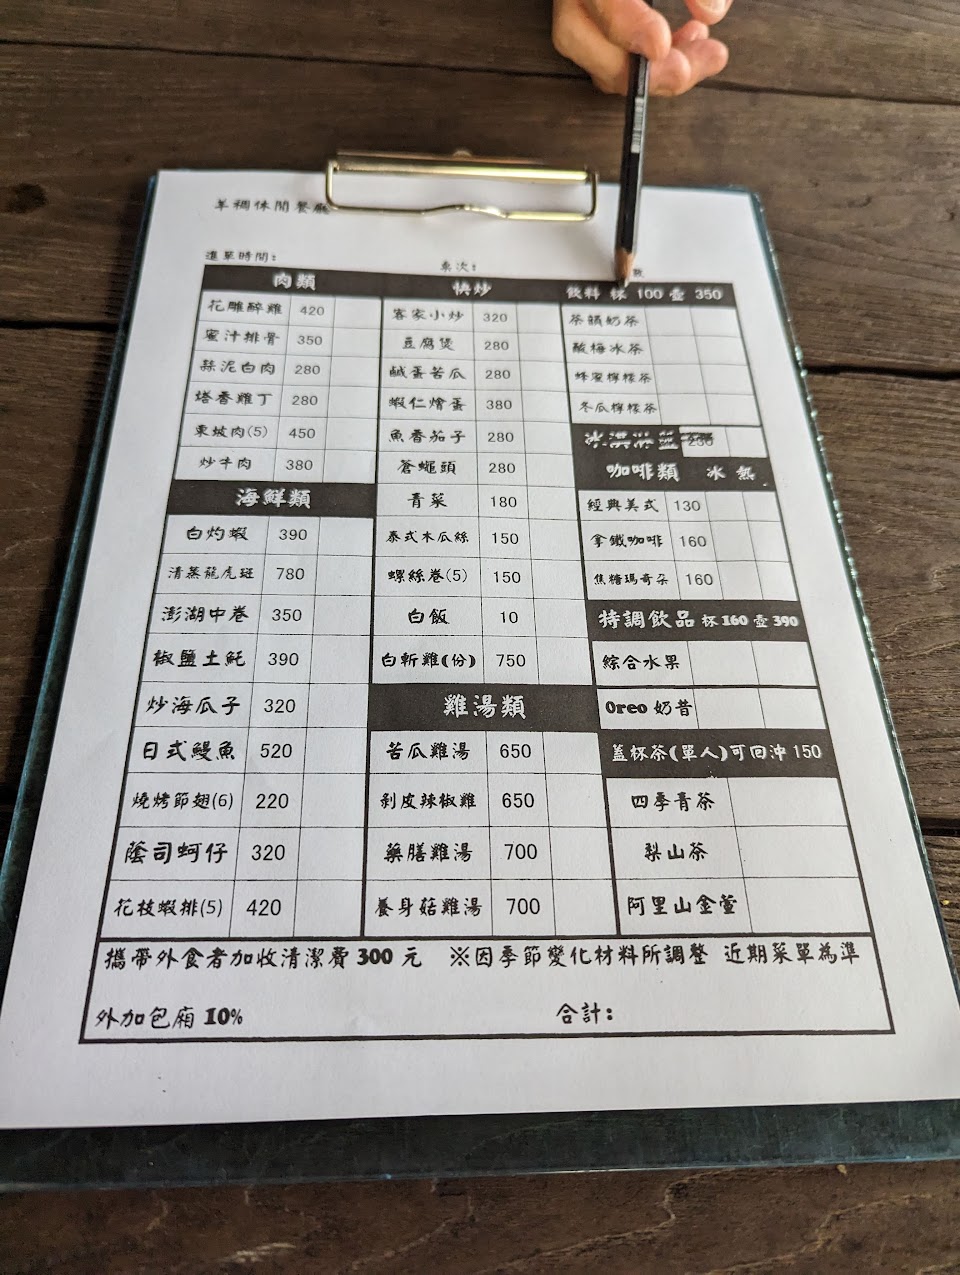 羊稠休閒餐廳
進單時間：
桌次：
數
肉類
花雕醉雞 420
蜜汁排骨 350
蒜泥白肉 280
塔香雞丁 280
東坡肉(5) 450
炒牛肉 380
海鮮類
白灼蝦 390
清蒸龍虎斑 780
澎湖中卷 350
椒鹽土魠 390
炒海瓜子 320
日式鰻魚 520
燒烤節翅(6) 220
蔭司蚵仔 320
花枝蝦排(5) 420
快炒
客家小炒 320
豆腐煲 280
鹹蛋苦瓜 280
蝦仁燴蛋 380
魚香茄子 280
蒼蠅頭 280
青菜 180
泰式木瓜絲 150
螺絲卷(5) 150
白飯 10
白斬雞(份) 750
雞湯類
苦瓜雞湯 650
剝皮辣椒雞 650
藥膳雞湯 700
養身菇雞湯 700
飲料 杯 100 壺 350
茶韻奶茶
酸梅冰茶
蜂蜜檸檬茶
冬瓜檸檬茶
冰淇淋 250
咖啡類 冰 熱
經典美式 130
拿鐵咖啡 160
焦糖瑪奇朵 160
特調飲品 杯 160 壺 390
綜合水果
Oreo 奶昔
蓋杯茶(單人)可回沖 150
四季青茶
梨山茶
阿里山金萱
攜帶外食者加收清潔費 300 元 ※因季節變化材料所調整 近期菜單為準
外加包廂 10%
合計：